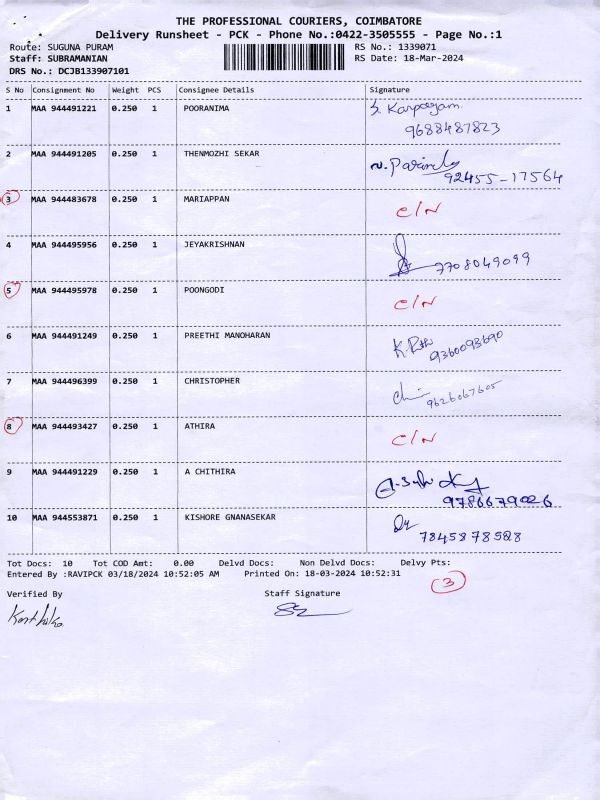 THE PROFESSIONAL COURIERS, COIMBATORE
Delivery Runsheet - PCK - Phone No.:0422-3505555 - Page No.:1
Route: SUGUNA PURAM RS No.: 1339071
Staff: SUBRAMANIAN RS Date: 18-Mar-2024
DRS No.: DCJB133907101
S No Consignment No Weight PCS Consignee Details Signature
1 MAA 944491221 0.250 1 POORANIMA
9688487823
2 MAA 944491205 0.250 1 THENMOZHI SEKAR
92455-17564
3 MAA 944483678 0.250 1 MARIAPPAN C/N
4 MAA 944495956 0.250 1 JEYAKRISHNAN 7708049099
5 MAA 944495978 0.250 1 POONGODI C/N
6 MAA 944491249 0.250 1 PREETHI MANOHARAN
9360093690
7 MAA 944496399 0.250 1 CHRISTOPHER 9626067605
8 MAA 944493427 0.250 1 ATHIRA C/N
9 MAA 944491229 0.250 1 A CHITHIRA
9786679026
10 MAA 944553871 0.250 1 KISHORE GNANASEKAR
Tot Docs: 10 Tot COD Amt: 0.00 Delvd Docs: Non Delvd Docs: Delvy Pts:
Entered By :RAVIPCK 03/18/2024 10:52:05 AM Printed On: 18-03-2024 10:52:31 3
Verified By Staff Signature